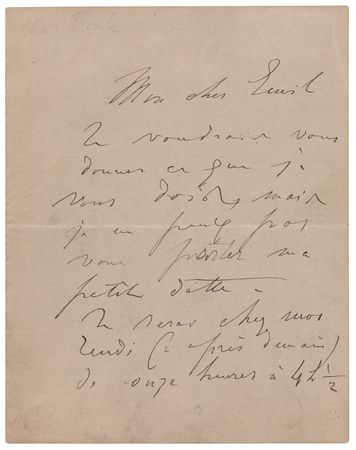 Mon cher Emil
Je voudrais vous
donner ce que je
vous dois, mais
je ne peux pas
vous ma
petite dette —
Je serai chez moi
lundi (après demain)
de onze heures à 4h 1/2